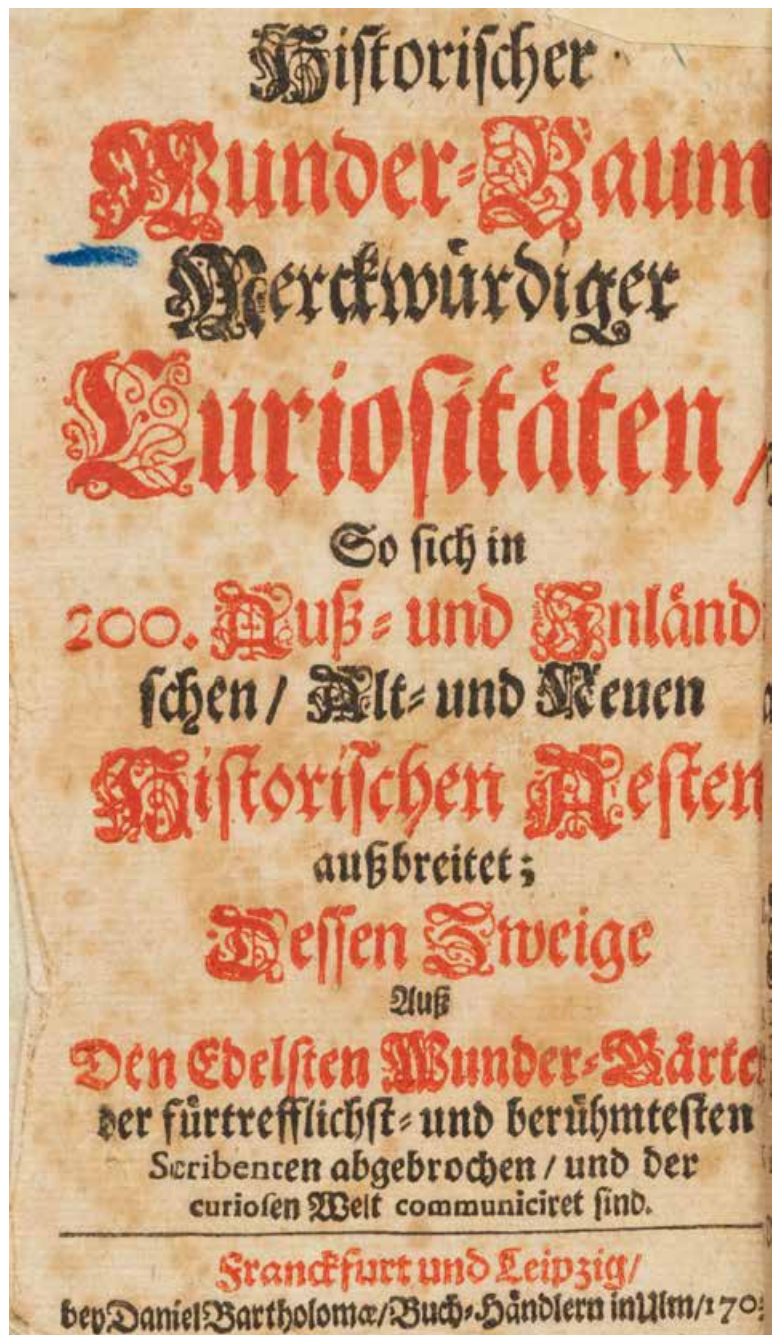 Historischer
Wunder-Baum
Merckwürdiger
Curiositäten /
So sich in
200. Auß- und Inländ
schen / Alt- und Neuen
Historischen Aesten
außbreitet;
Dessen Zweige
Auß
Den Edelsten Wunder-Gärte
der fürtrefflichst- und berühmtesten
Scribenten abgebrochen / und der
curiosen Welt communiciret sind.
Franckfurt und Leipzig /
bey Daniel Bartholomæ / Buch-Händlern in Ulm / 170